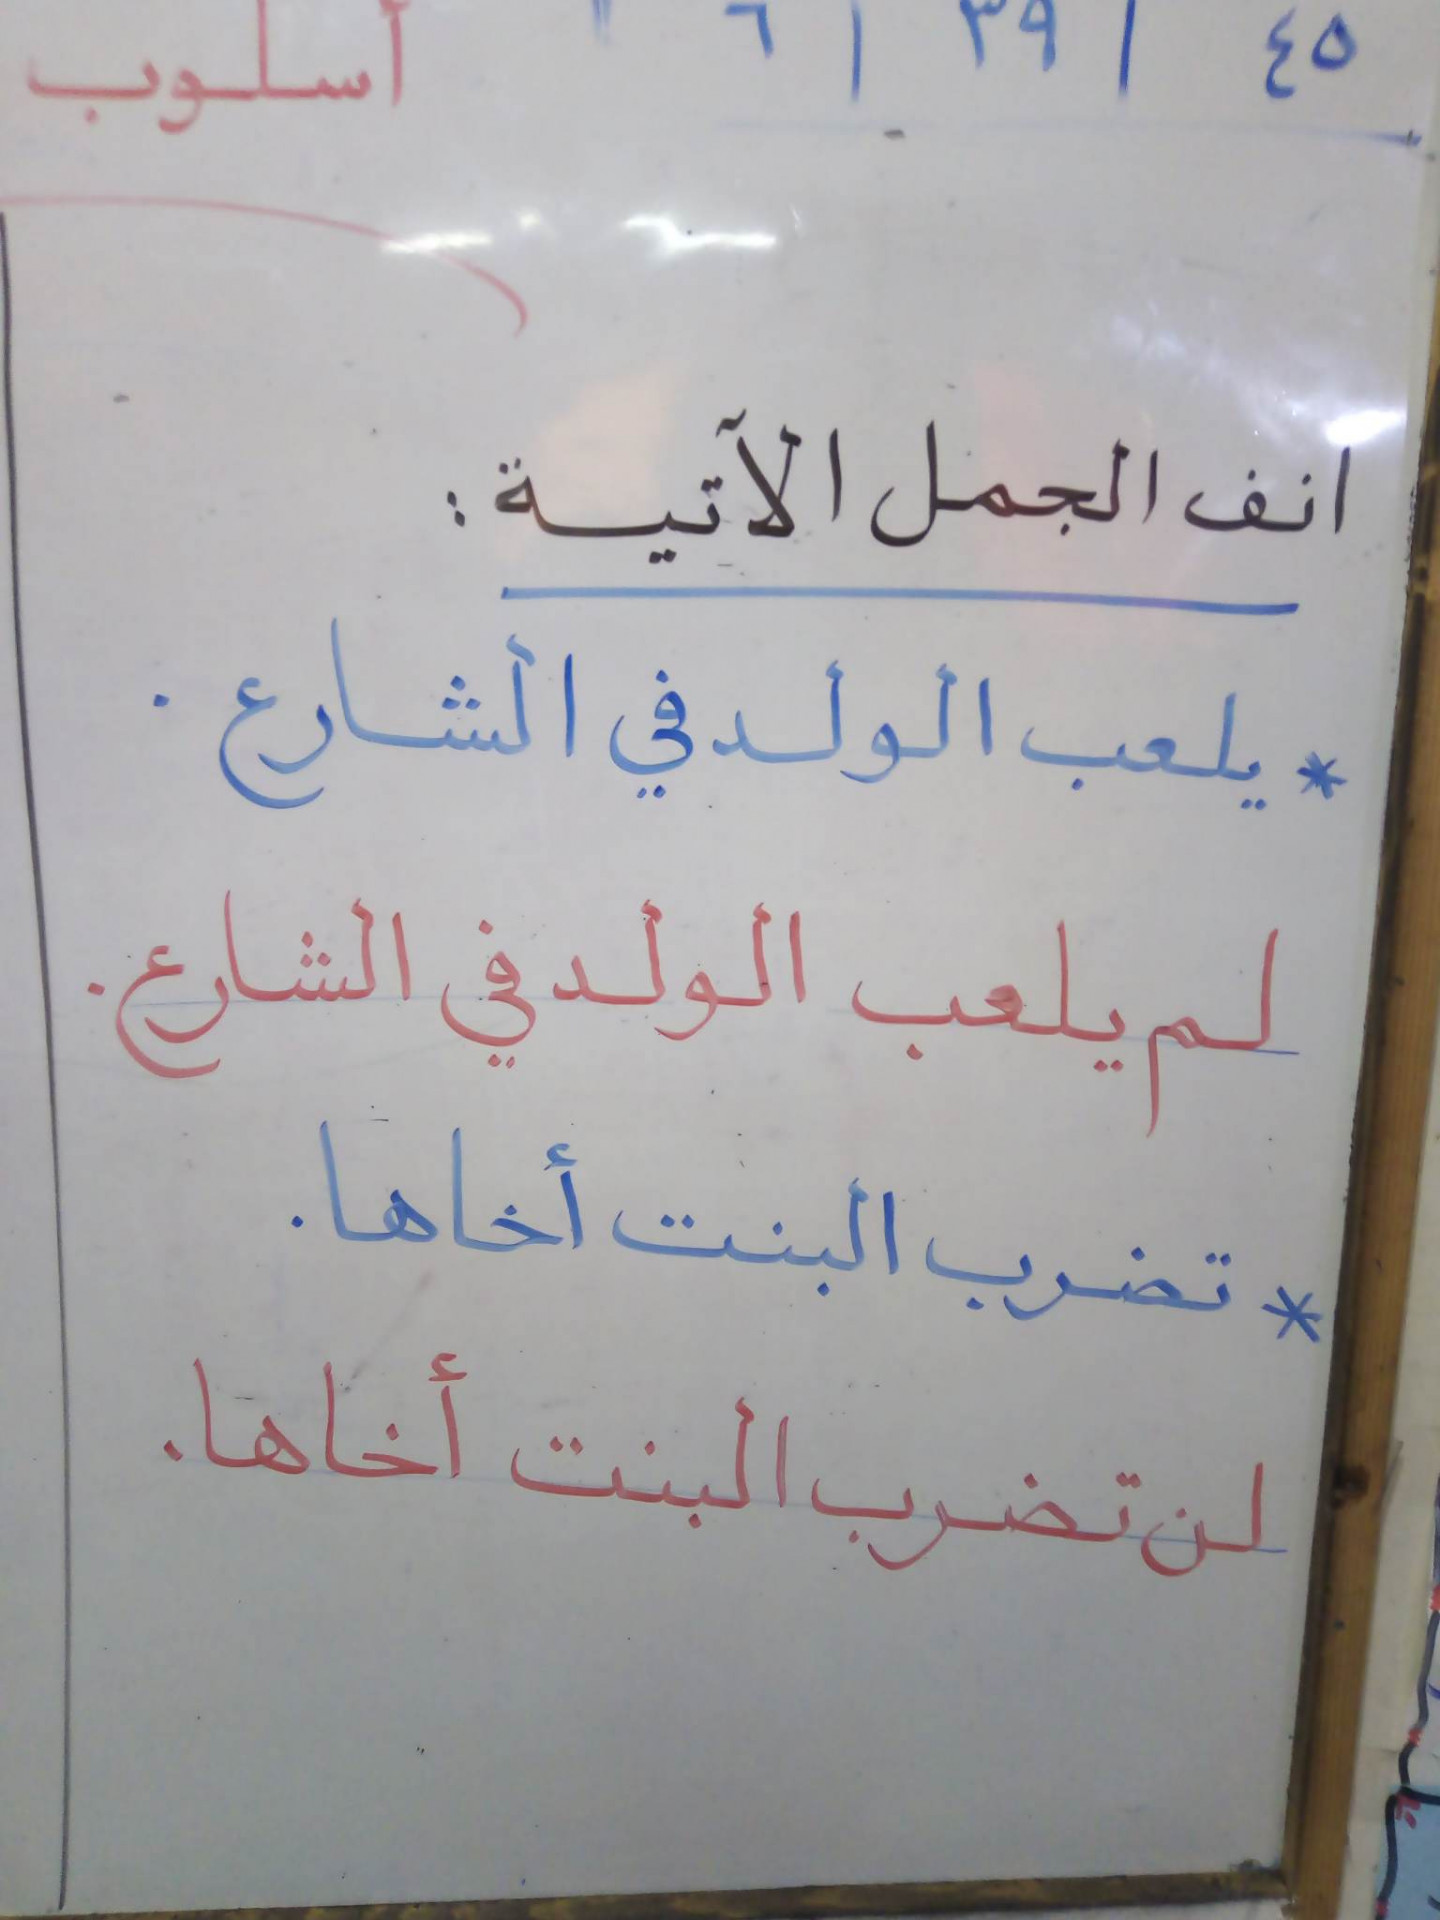 ٤٥ | ٣٩ | ٦
أسلوب
انف الجمل الآتية :
* يلعب الولد في الشارع .
لم يلعب الولد في الشارع .
* تضرب البنت أخاها .
لن تضرب البنت أخاها .